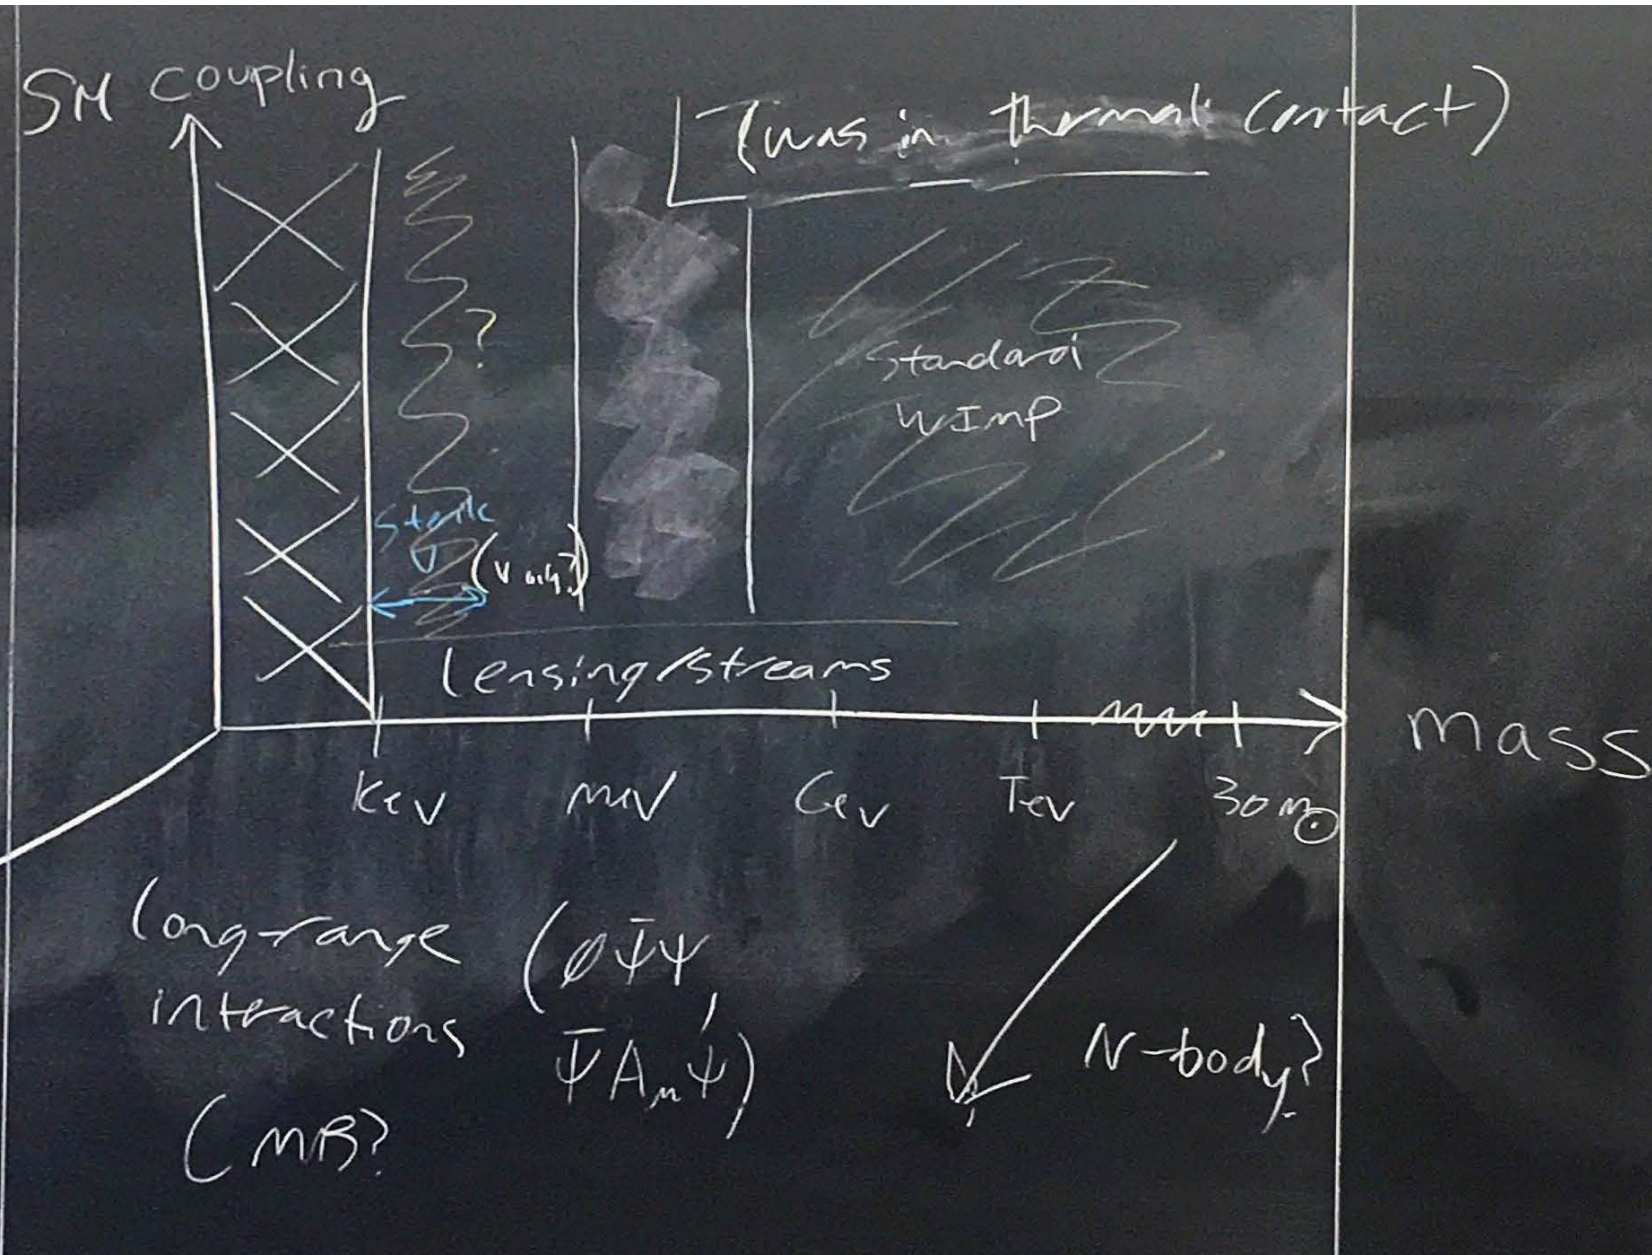 SM coupling
(was in thermal contact)
?
Standard
WIMP
Sterile
ν
(ν
lensing/streams
KeV
MeV
GeV
TeV
30 M☉
mass
long-range
interactions
(φΨ̄Ψ,
Ψ̄AμΨ)
N-body?
CMB?